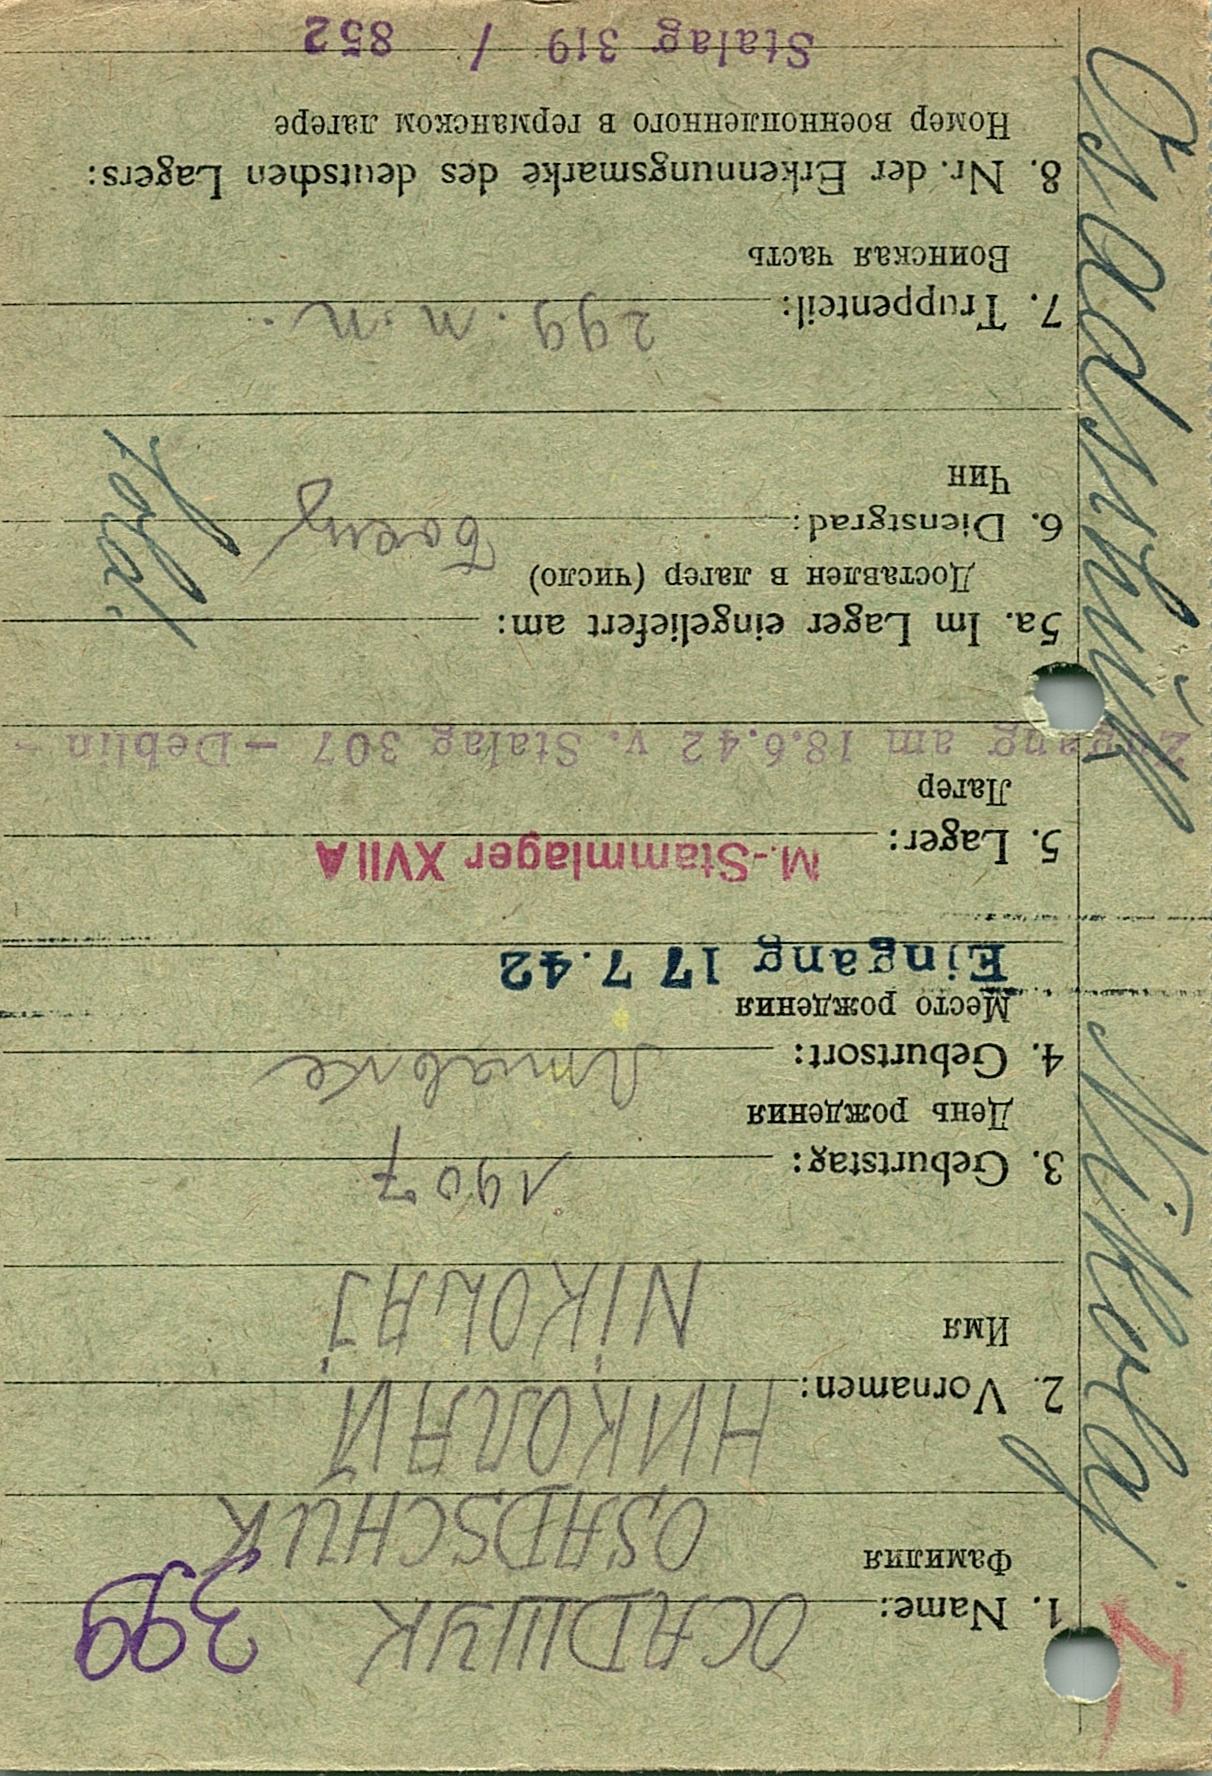 399
1. Name: ОСАДШУК
Фамилия OSADSCHUK
2. Vornamen: НИКОЛАЙ
Имя NIKOLAJ
3. Geburtstag: 1907
День рождения
4. Geburtsort:
Место рождения
Eingang 17 7.42
5. Lager: M.-Stammlager XVII A
Лагер
Zugang am 18.6.42 v. Stalag 307 – Deblin –
5a. Im Lager eingeliefert am:
Доставлен в лагер (число)
6. Dienstgrad: Боец Sold.
Чин
7. Truppenteil: 299. п. п.
Воинская часть
8. Nr. der Erkennungsmarke des deutschen Lagers:
Номер военнопленного в германском лагере
Stalag 319 / 852
Osadschuk Nikolaj